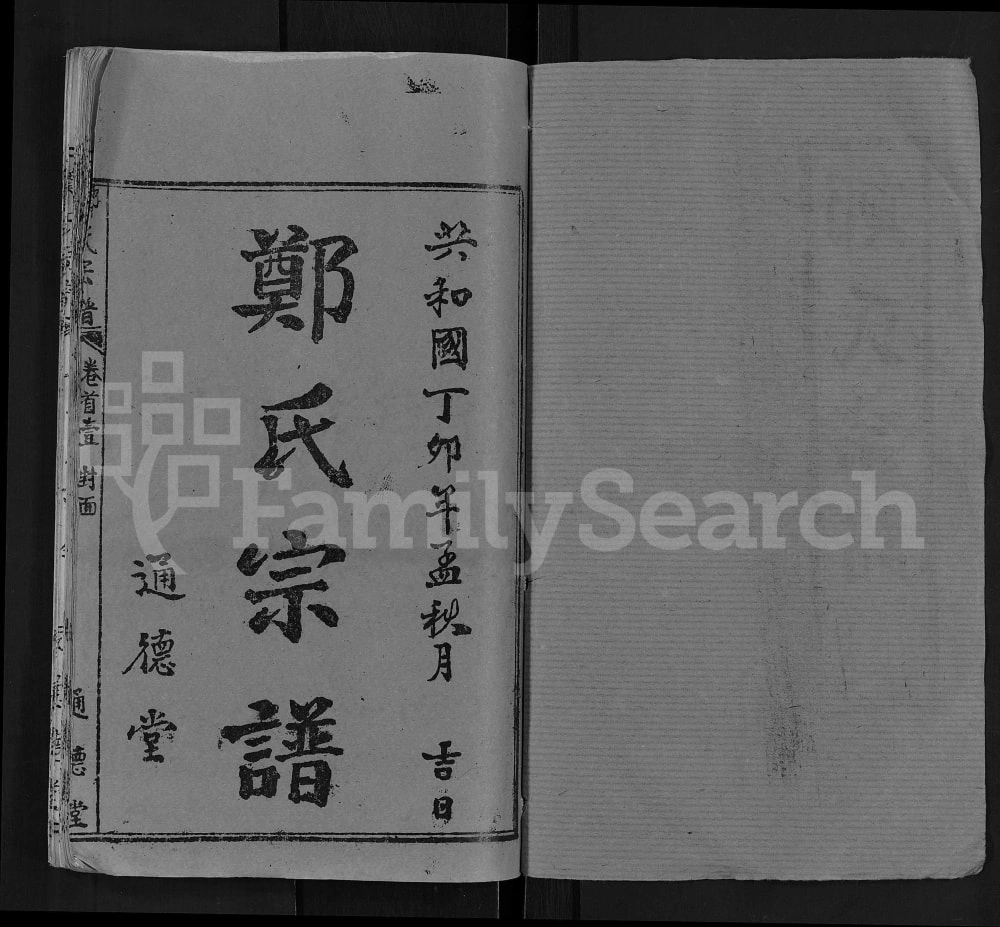 共和國丁卯年孟秋月 吉日
鄭氏宗譜
通德堂
鄭氏宗譜 卷首壹 封面 通德堂
FamilySearch